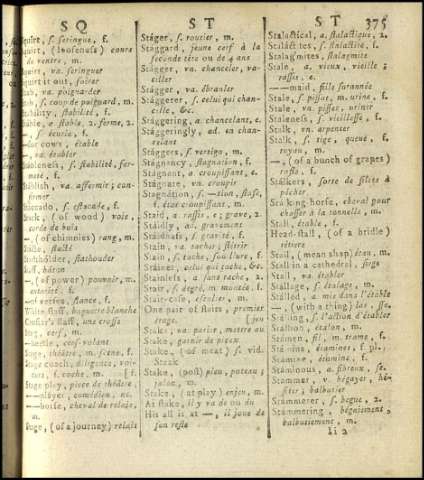 SQ
ST
ST 375
Squirt, s. seringue, f.
Squirt, (looseness) cours
de ventre, m.
Squirt, va. seringuer
Squirt it out, fairer
Stab, va. poignarder
Stab, s. coup de poignard, m.
Stability, stabilité, f.
Stable, a. stable, 2. ferme, 2.
s. écurie, f.
for cows, étable
va. établer
Stableness, s. stabilité, fer-
meté, f.
Stablish, va. affermir; con-
firmer
s. estocade, f.
Stack, (of wood) voie,
corde de bois
(of chimnies) rang, m.
Stadtholder, stathouder
Staff, bâton
(of power) pouvoir, m.
of verses, stance, f.
White staff, baguette blanche
Crosier's staff, une crosse
Stag, cerf, m.
beetle, cerf-volant
Stage, théâtre, m. scene, f.
Stage coach, diligence, voi-
ture, f. coche, m.
Stage play, piece de théâtre,
player, comédien, ne.
horse, cheval de relais,
m.
Stage, (of a journey) relais
Stáger, s. routier, m.
Stággard, jeune cerf à la
seconde tête ou de 4 ans
Stágger, va. chanceler, va-
ciller
Stágger, va. ébranler
Stággerer, s. celui qui chan-
cele, &c.
Stággering, a. chancelant, e.
Stággeringly, ad. en chan-
celant
Stággers, s. vertigo, m.
Stágnancy, stagnation, f.
Stágnant, a. croupissant, e.
Stágnate, va. croupir
Stagnátion, s. —tion, stase,
f. état croupissant, m.
Staid, a. rassis, e; grave, 2.
Stáidly, ad. gravement
Stáidness, s. gravité, f.
Stain, va. tacher; flétrir
Stain, s. tache, souillure, f.
Stáiner, celui qui tache, &c.
Stáinless, a. sans tache, 2.
Stair, s. degré, m. montée, f.
Stair-case, escalier, m.
One pair of stairs, premier
étage. [jeu
Stake, va. parier, mettre au
Stake, garnir de pieux
Stake, (of meat) s. vid.
Steak
Stake, (post) pieu, poteau;
jalon, m.
Stake, (at play) enjeu, m.
At stake, il y va de ou du
His all is at —, il joue de
son reste
Stalactical, a. stalactique, 2.
Stálactites, s. stalactite, f.
Stalagmites, stalagmite
Stale, a. vieux, vieille;
rassis, e.
—maid, fille surannée
Stale, s. pissat, m. urine, f.
Stale, va. pisser, uriner
Staleness, s. vieillesse, f.
Stalk, vn. arpenter
Stalk, s. tige, queue, f.
tuyau, m.
—, (of a bunch of grapes)
rafle, f.
Stálkers, sorte de filets à
pêcher
Stálking-horse, cheval pour
chasser à la tonnelle, m.
Stall, étable, f.
Head-stall, (of a bridle)
têtiere
Stall, (mean shop) étau, m.
Stall in a cathedral, siege
Stall, va. établer
Stállage, s. étalage, m.
Stálled, a. mis dans l'étable
—, (with a thing) las, se.
Stálling, s. l'action d'établer
Stállion, étalon, m.
Stámen, fil, m. trame, f.
Stámina, étamines, f. pl.
Stámine, étamine, f.
Stáminous, a. fibreux, se.
Stámmer, v. bégayer, hé-
siter; balbutier
Stámmerer, s. begue, 2.
Stámmering, bégaiement,
balbutiement, m.
Ii 2